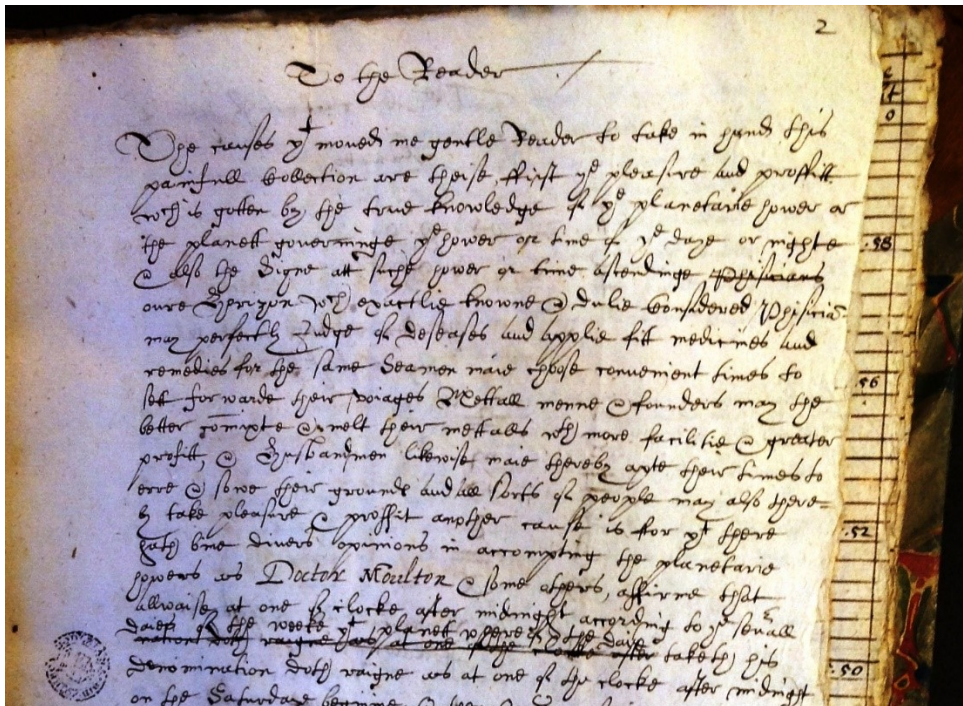 2
To the Reader
The causes yt moved me gentle Reader to take in hand this
painfull Collection are theise, ffirst ye pleasure and proffitt
wch is gotten by the true knowledge of ye planetarie hower or
the planett governinge ye hower or time of ye daye or nighte
& also the Signe att suche hower or time ascendinge Phisicians
oure Horizon wch exactlie knowne & dulie Considered Phisiciā
may perfectly Judge of deseases and applie fitt medicines and
remedies for the same Seamen maie choose convenient times to
sett forwarde their voiages Mettall menne & founders may the
better & melt their mettalls wth more facilitie & greater
profitt, & Husbandmen likewise maie thereby apte their times to
erre & sowe their grounds and all sorts of people may also there=
by take pleasure & proffit another cause is for yt there
hath bine divers opinions in accompting the planetarie
howers as Doctor Moulton & some others, affirme that
allwaise at one of clocke after midnight according to ye seuall
daies of the weeke yt planet whereof the daie taketh his
denomination doth raigne as at one of the clocke after midnight
on the Saturdaye beginninge
.58
.56
.52
.50
0